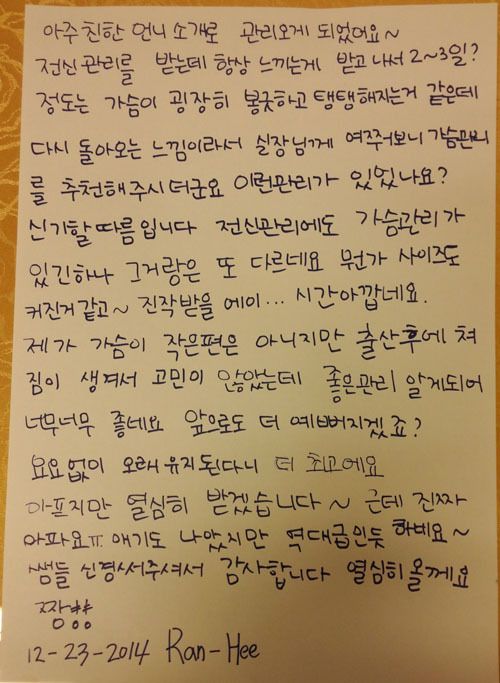 아주 친한 언니 소개로 관리오게 되었어요~
전신관리를 받는데 항상 느끼는게 받고 나서 2~3일?
정도는 가슴이 굉장히 봉긋하고 탱탱해지는거 같은데
다시 돌아오는 느낌이라서 실장님께 여쭈어보니 가슴관리
를 추천해주시더군요 이런관리가 있었나요?
신기할따름입니다 전신관리에도 가슴관리가
있긴하나 그거랑은 또 다르네요 뭔가 사이즈도
커진거같고~ 진작받을 에이... 시간아깝네요.
제가 가슴이 작은편은 아니지만 출산후에 쳐
짐이 생겨서 고민이 많았는데 좋은관리 알게되어
너무너무 좋네요 앞으로도 더 예뻐지겠죠?
요요없이 오래유지된다니 더 최고에요
아프지만 열심히 받겠습니다~ 근데 진짜
아파요ㅠ 애기도 나았지만 역대급인듯 하비요~
쌤들 신경써주셔서 감사합니다 열심히올께요
짱뿅
12-23-2014 Ran-Hee